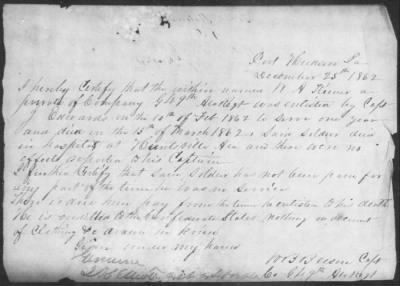 Port Hudson La
December 25th 1862
I hereby Certify that the within named W. H.
private of Company G 49th was enlisted by Capt
Edwards on the 10th of Feb 1862 to serve one year
and died on the 15th of March 1862 Said Soldier died
in hospital at Huntsville Ala and there were no
effects reported to his Captain
I further Certify that said Soldier has not been paid for
any part of the time he was in Service
There is due him pay from the time he enlisted to his death
He is indebted to the Confederate States nothing on account
of Clothing &c drawn in kind
Given under my hand
Capt
Co G 49th